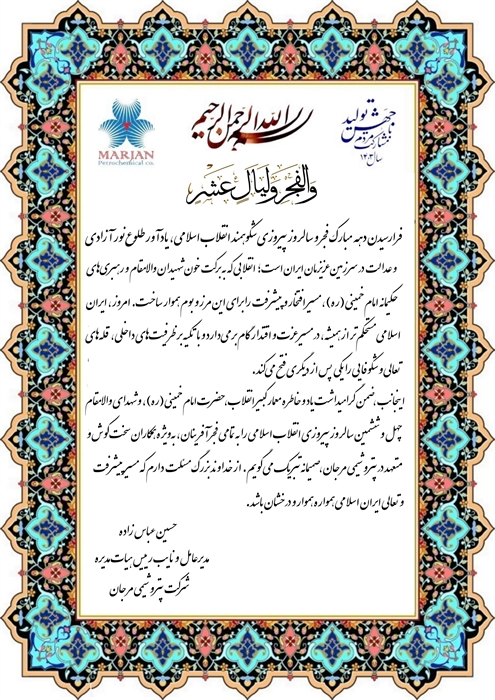 بسم الله الرحمن الرحیم
جهش تولید
با مشارکت مردم
سال ۱۴۰۳
MARJAN
Petrochemical co.
والفجر ولیال عشر
فرارسیدن دهه مبارک فجر و سالروز پیروزی شکوهمند انقلاب اسلامی، یادآور طلوع نور آزادی
و عدالت در سرزمین عزیزمان ایران است؛ انقلابی که به برکت خون شهیدان والامقام و رهبری‌های
حکیمانه امام خمینی (ره)، مسیر افتخار و پیشرفت را برای این مرز و بوم هموار ساخت. امروز، ایران
اسلامی مستحکم تر از همیشه، در مسیر عزت و اقتدار گام برمی دارد و با تکیه بر ظرفیت های داخلی، قله های
تعالی و شکوفایی را یکی پس از دیگری فتح می کند.
اینجانب، ضمن گرامیداشت یاد و خاطره معمار کبیر انقلاب، حضرت امام خمینی (ره)، و شهدای والامقام
چهل و ششمین سالروز پیروزی انقلاب اسلامی را به تمامی فجرآفرینان، به ویژه همکاران سخت کوش و
متعهد در پتروشیمی مرجان، صمیمانه تبریک می گویم. از خداوند بزرگ مسئلت دارم که مسیر پیشرفت
و تعالی ایران اسلامی همواره هموار و درخشان باشد.
حسین عباس زاده
مدیرعامل و نایب رییس هیات مدیره
شرکت پتروشیمی مرجان